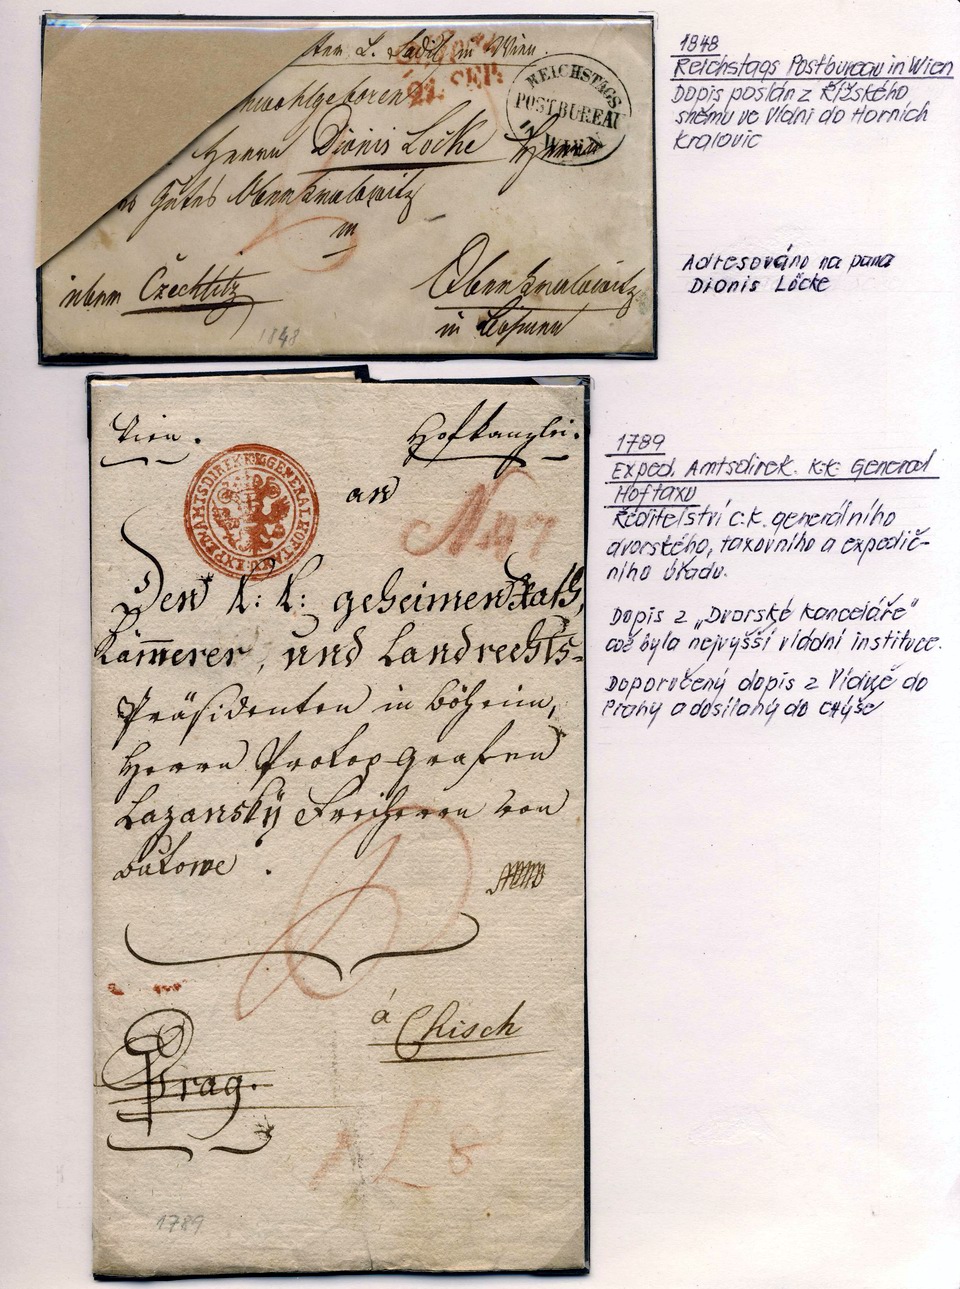 L. Sadil in Wien.
21. SEP.
REICHSTAGS
POSTBUREAU
IN WIEN
Herrn Dionis Löcke
Gutes Oberkralowitz
in
Czechtitz
Oberkralowitz
in Böhmen
1848
1848
Reichstags Postbureau in Wien
Dopis poslán z Řížského
sněmu ve Vídni do Horních
Kralovic
Adresováno na pana
Dionis Löcke
Wien.
Hofkanzlei.
an
N 47
Den k: k: geheimen Rath,
Kämerer, und Landrechts-
Präsidenten in Böheim,
Herrn Prokop Grafen
Lazansky Freiherrn von
Bukowe.
á Chisch
Prag.
1789
1789
Exped. Amtsdirek. k.k. General
Hoftaxu
Ředitelství c.k. generálního
dvorského, taxovního a expedič-
ního úřadu.
Dopis z „Dvorské kanceláře"
což byla nejvyšší vládní instituce.
Doporučený dopis z Vídně do
Prahy a dosílaný do Chýše